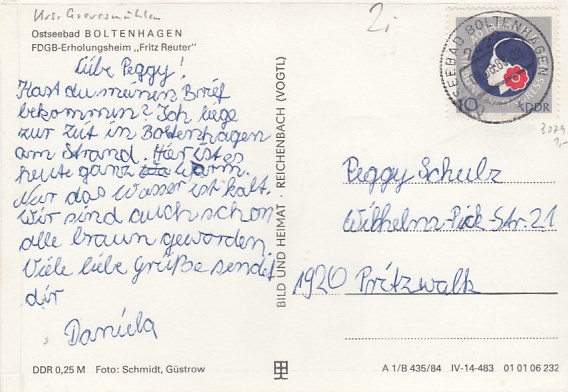 Krs. Grevesmühlen
2,-
Ostseebad BOLTENHAGEN
FDGB-Erholungsheim „Fritz Reuter"
Liebe Peggy!
Hast du meinen Brief
bekommen? Ich liege
zur Zeit in Boltenhagen
am Strand. Hier ist es
heute ganz warm.
Nur das Wasser ist kalt.
Wir sind auch schon
alle braun geworden.
Viele liebe Grüße sendet
dir
Daniela
DDR 0,25 M Foto: Schmidt, Güstrow
BILD UND HEIMAT · REICHENBACH (VOGTL)
SEEBAD BOLTENHAGEN
10 DDR
3079
1,-
Peggy Schulz
Wilhelm-Pick-Str. 21
1920 Pritzwalk
A 1/B 435/84 IV-14-483 01 01 06 232